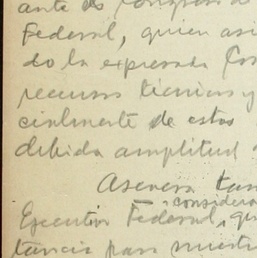 ante
Federal, quien asi
do la expresada Co
recursos tecnicos y
cialmente de estos
debida amplitud
Asevera tam
considera
Ejecutivo Federal, qu
tancia para nuestr